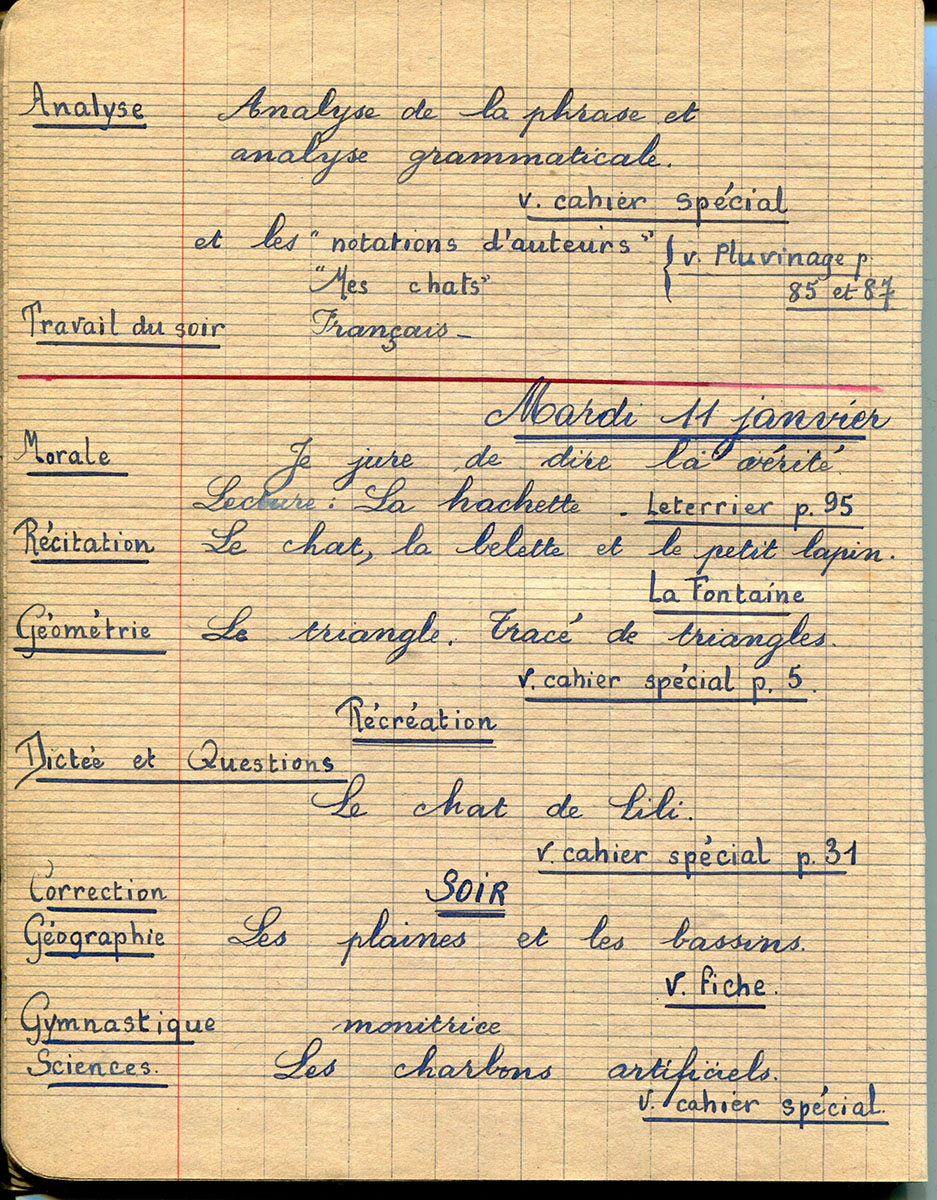 Analyse Analyse de la phrase et
analyse grammaticale.
v. cahier spécial
et les "notations d'auteurs" { v. Pluvinage p.
"Mes chats" 85 et 87
Travail du soir Français _
Mardi 11 janvier
Morale Je jure de dire la vérité.
Lecture : La hachette . Leterrier p. 95
Récitation Le chat, la belette et le petit lapin.
La Fontaine
Géométrie Le triangle. Tracé de triangles.
v. cahier spécial p. 5.
Récréation
Dictée et Questions
Le chat de Lili.
v. cahier spécial p. 31
Correction SOIR
Géographie Les plaines et les bassins.
v. fiche.
Gymnastique monitrice
Sciences. Les charbons artificiels.
v. cahier spécial.